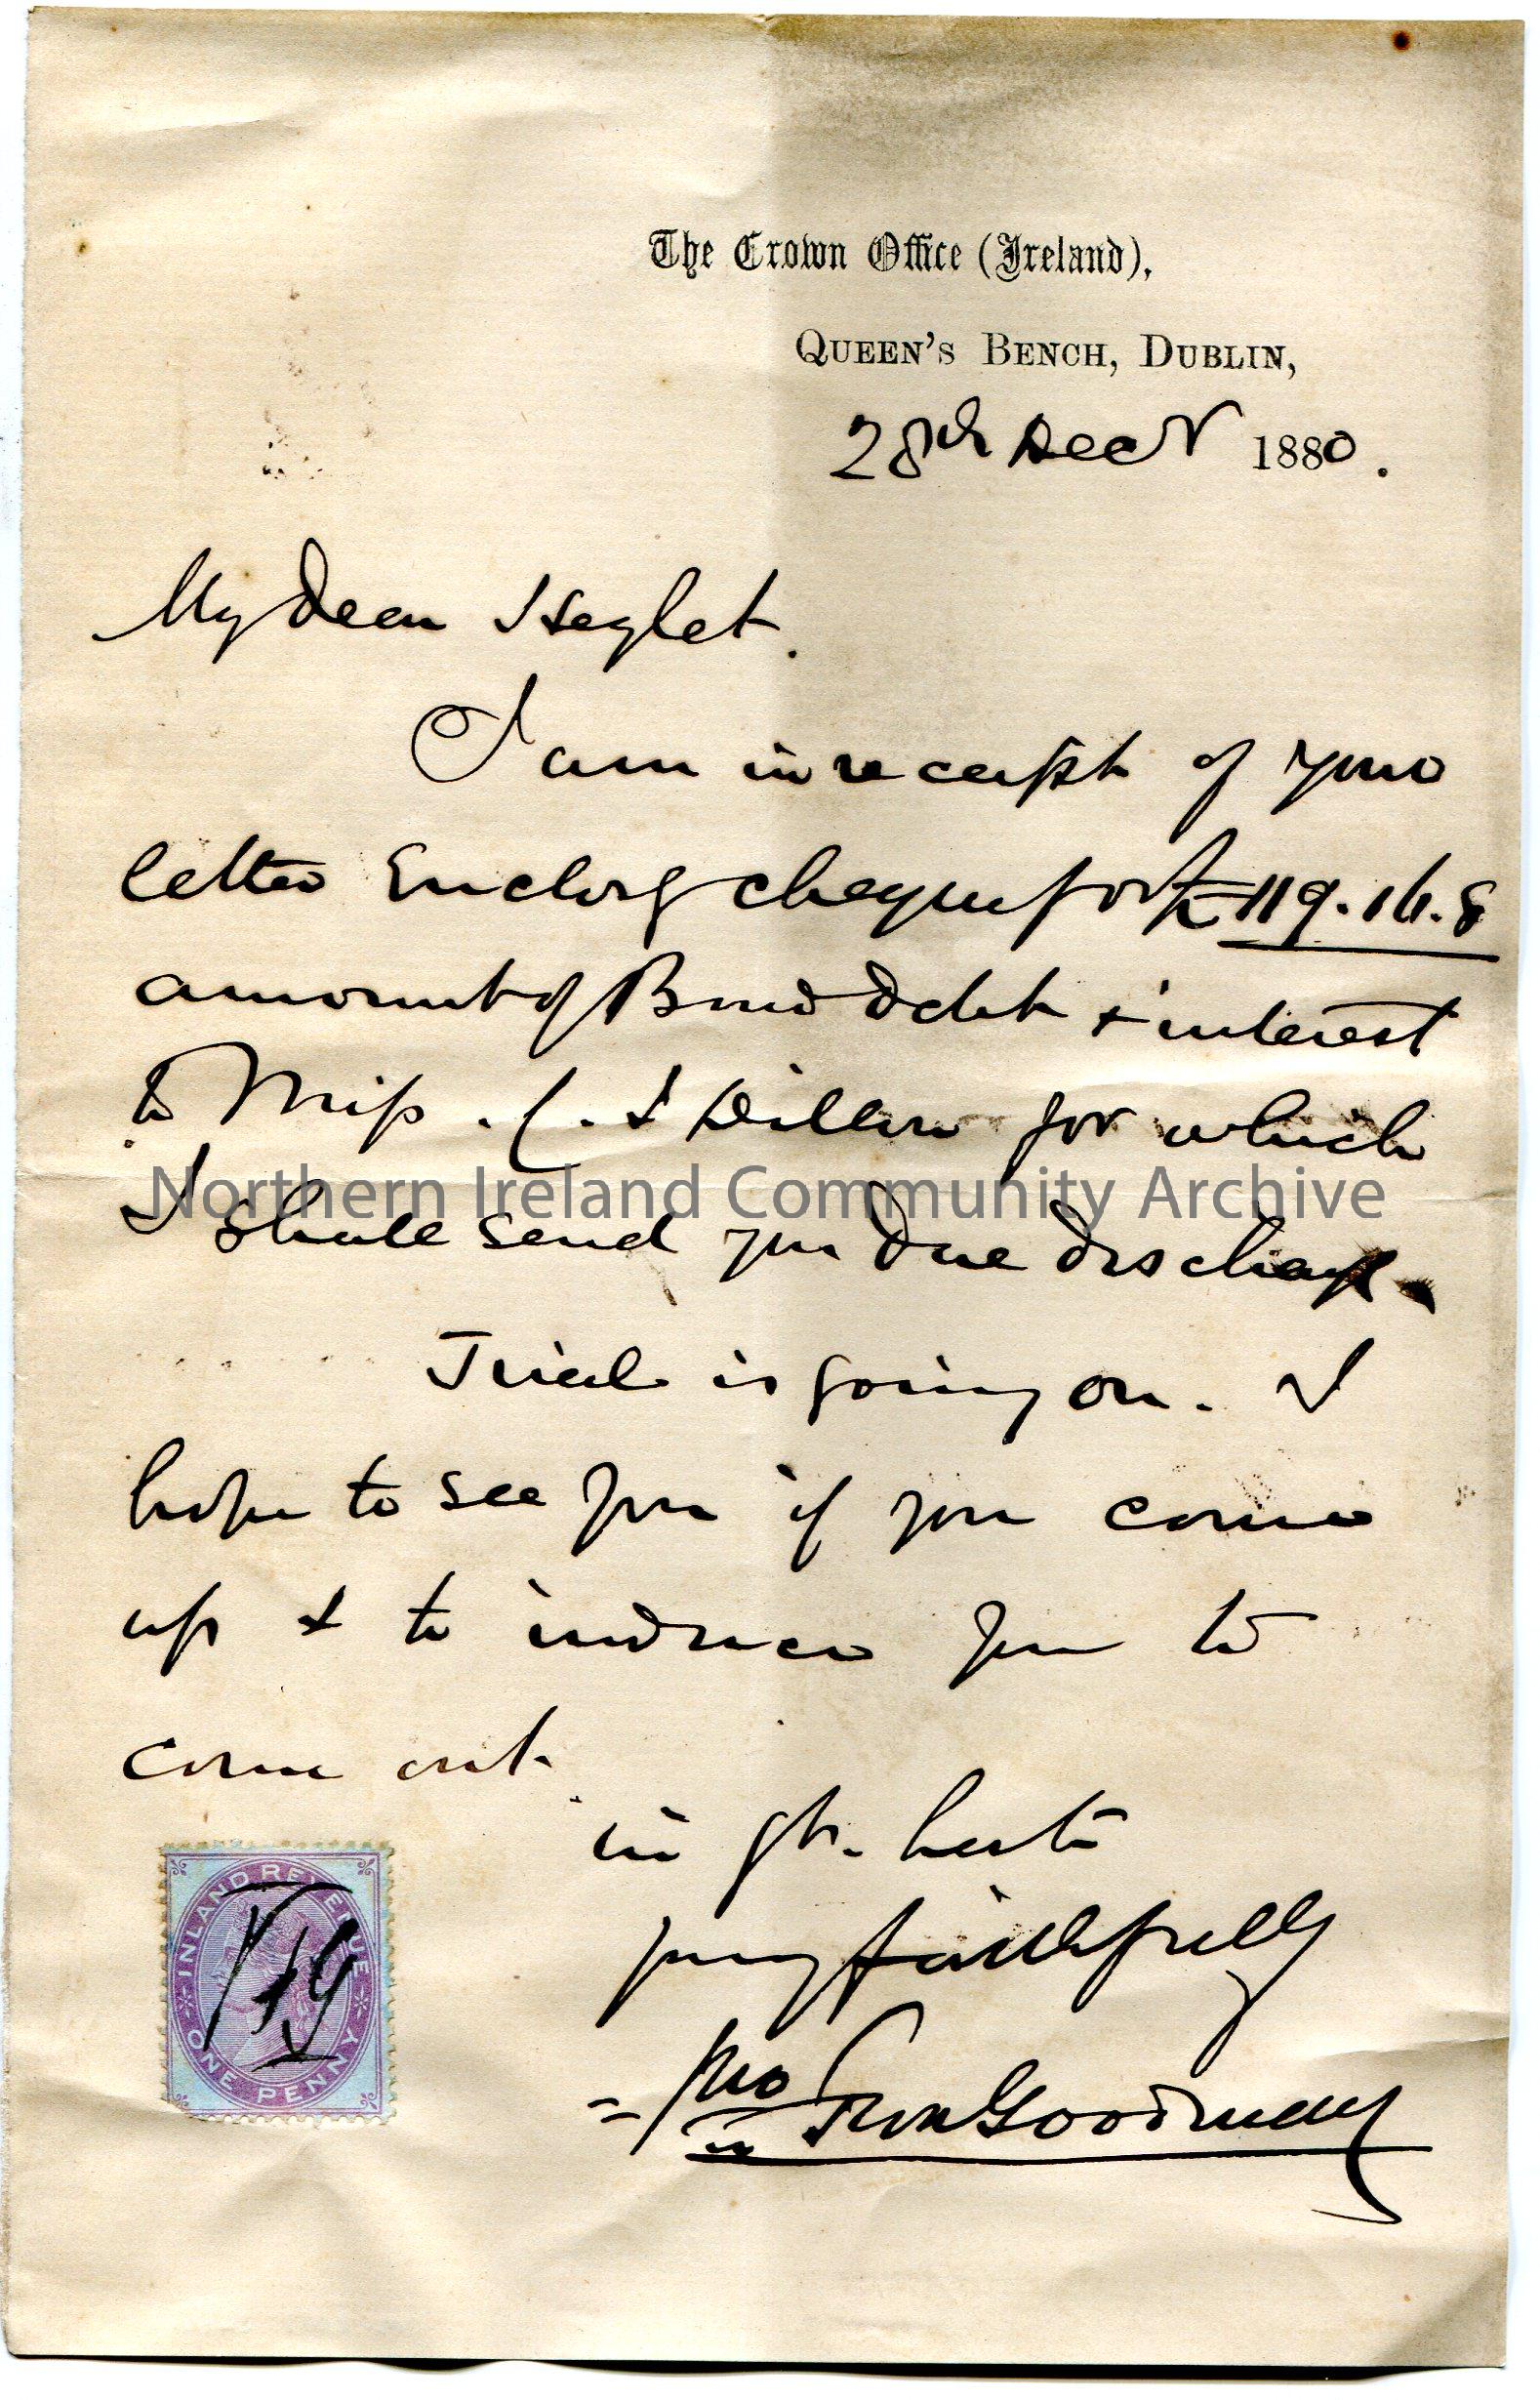 The Crown Office (Ireland),
QUEEN'S BENCH, DUBLIN,
28th Decr 1880.
My dear Hezlet.
I am in receipt of your
letter Enclosg cheque for £119.16.8
amount of Bond debt & interest
to Miss . & Dillon for which
Northern Ireland Community Archive
I shall send you due discharge.
Trial is going on. I
hope to see you if you come
up & to induce you to
come out.
in gt. haste
yours faithfully
Goodman
INLAND REVENUE
ONE PENNY